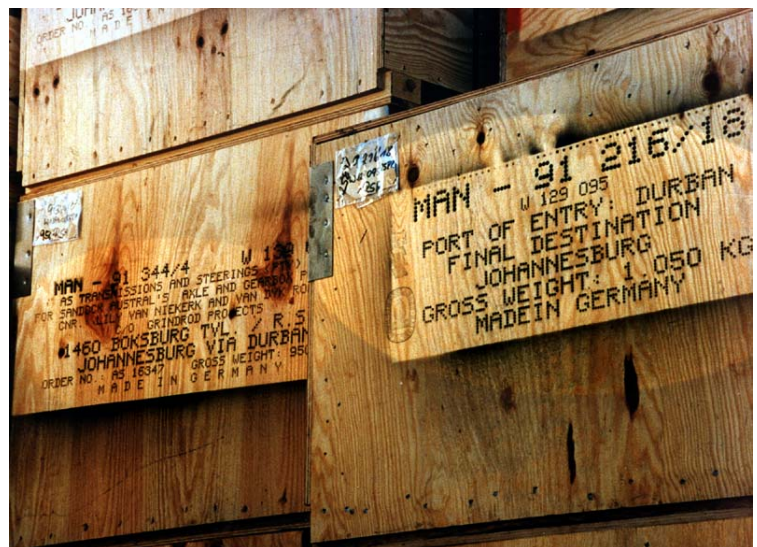 ORDER NO
MADE IN
MAN - 91 344/4 W
AS TRANSMISSIONS AND STEERINGS
FOR SANDOCK AUSTRAL'S AXLE AND GEARBOX
CNR. LILY VAN NIEKERK AND VAN
C/O GRINDROD PROJECTS
1460 BOKSBURG TVL. / R.S
JOHANNESBURG VIA DURBAN
ORDER NO.: AS 16347 GROSS WEIGHT: 950
MADE IN GERMANY
MAN - 91 216/18
W 129 095
PORT OF ENTRY: DURBAN
FINAL DESTINATION
JOHANNESBURG
GROSS WEIGHT: 1.050 KG
MADEIN GERMANY